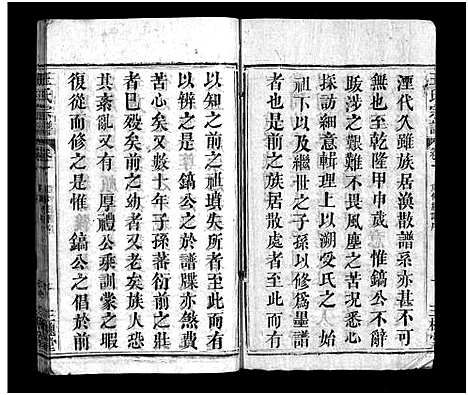 湮代久雖族居渙散譜系亦甚不可
無也至乾隆甲申歲　惟鎬公不辭
跋涉之艱難不畏風塵之苦況悉心
採訪細意輯理上以溯受氏之　始
祖下以及繼世之子孫以修爲墨譜
者也是前之族居散處者至此而有
以知之前之祖墳失所者至此而有
以辨之是　鎬公之於譜牒亦煞費
苦心矣又數十年子孫蕃衍前之壯
者已殁矣前之幼者又老矣族人恐
其紊亂又有　厚禮公乘訓蒙之暇
復從而修之是惟　鎬公之倡於前
王氏宗譜